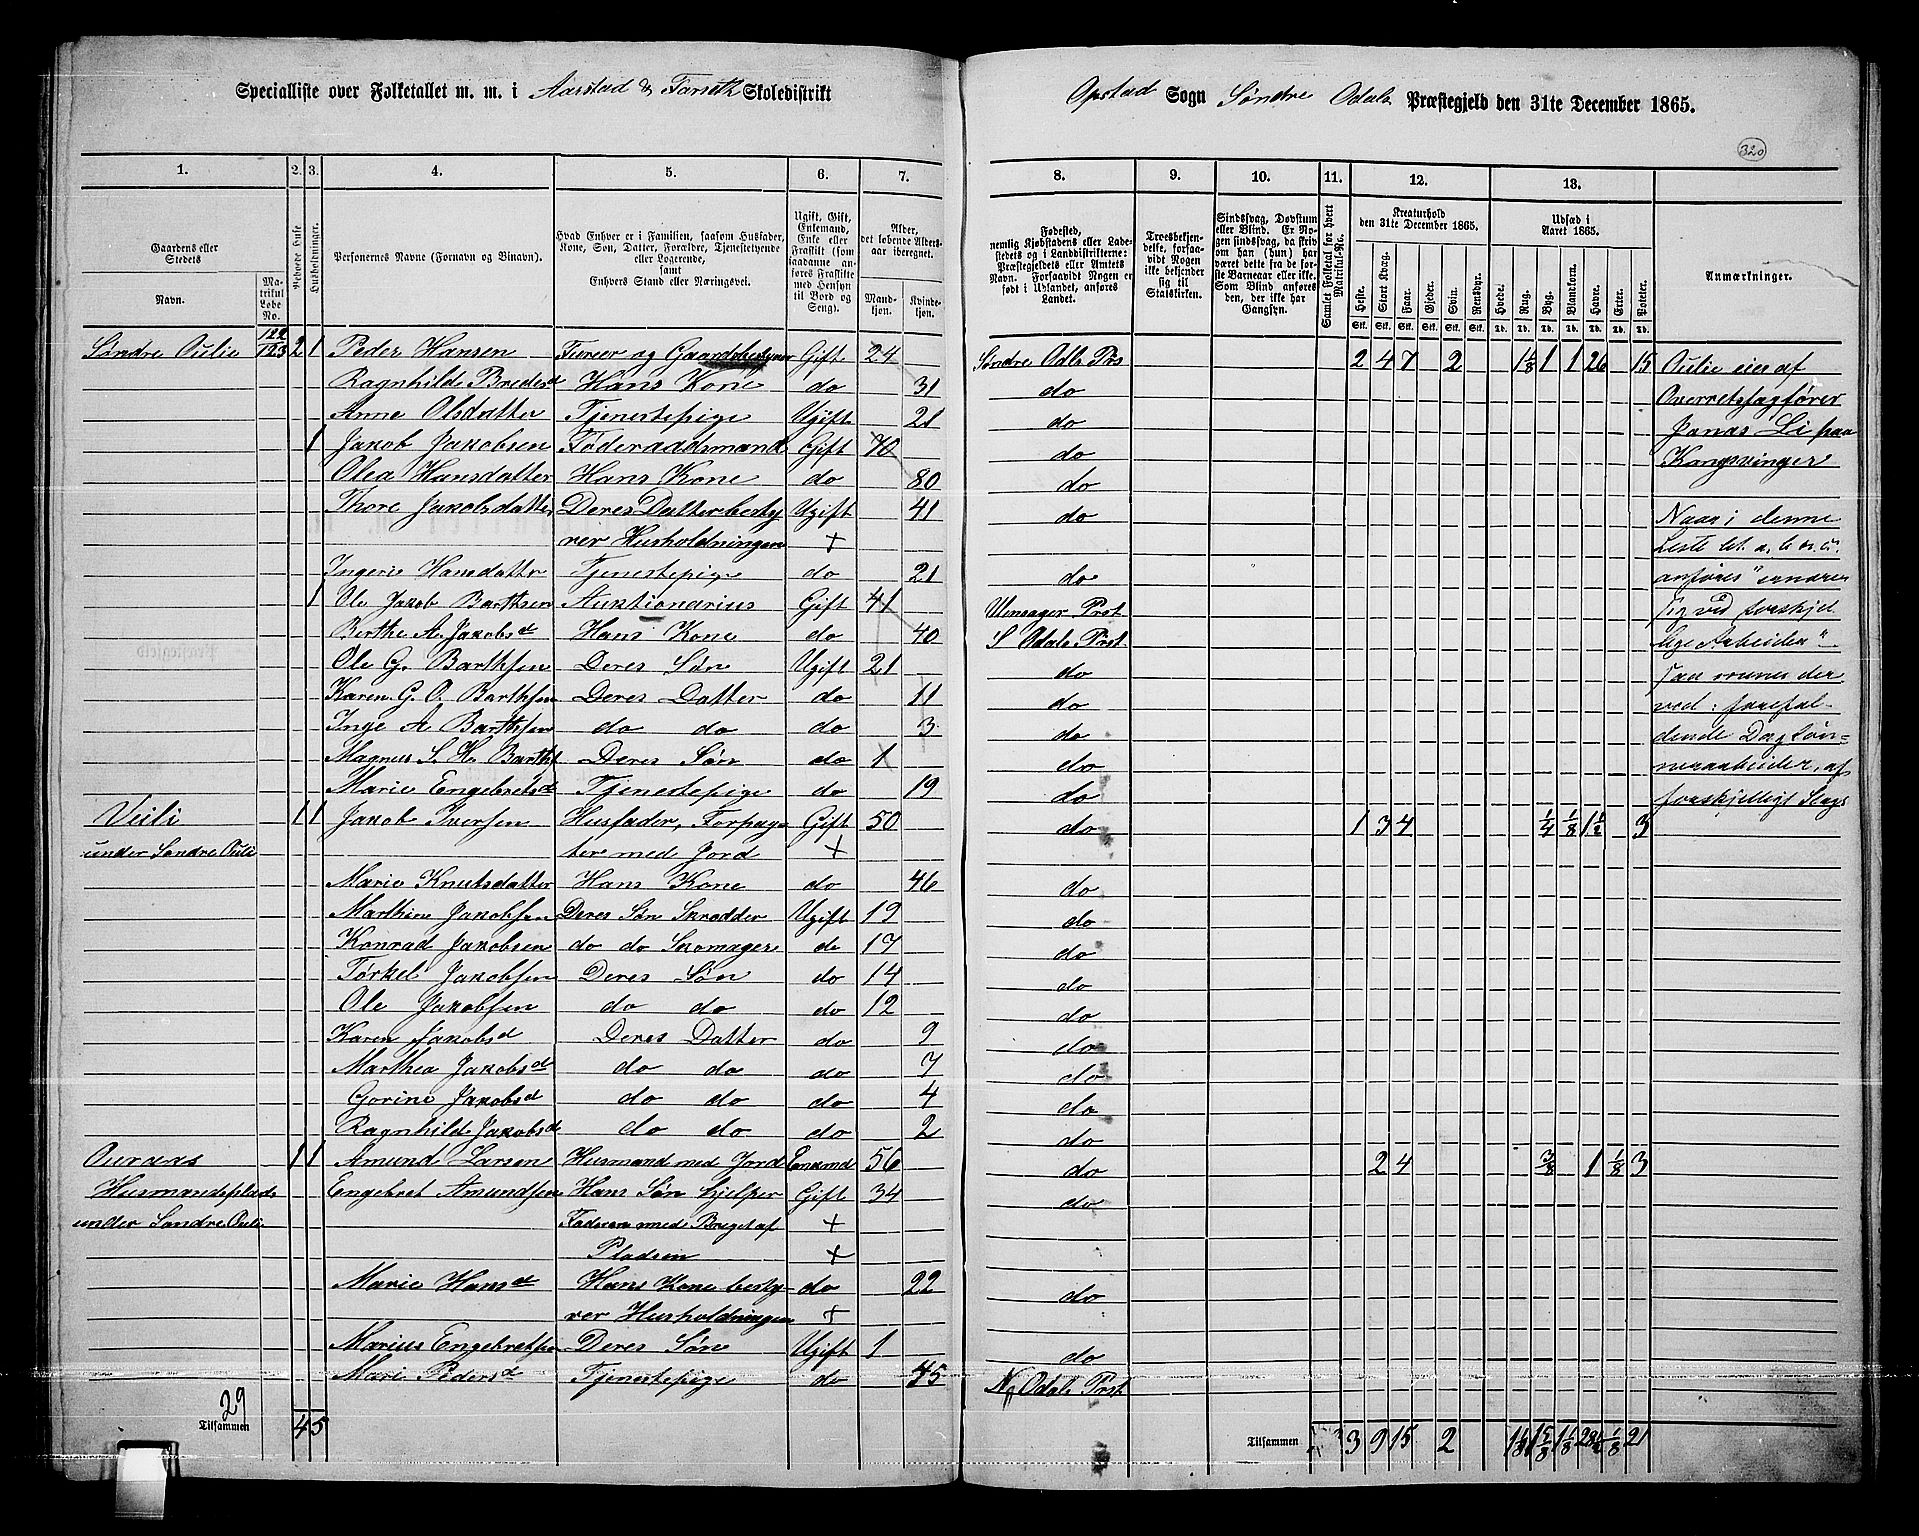 Specialliste over Folketallet m. m. i Aarstad & Farseth Skoledistrikt
Opstad Sogn Søndre Odals Præstegjeld den 31te December 1865.
320
1. 2. 3. 4. 5. 6. 7. 8. 9. 10. 11. 12. 13.
Gaardens eller Stedets Navn.
Matrikul Løbe No.
Beboede Huse
Husholdninger.
Personernes Navne (Fornavn og Binavn).
Hvad Enhver er i Familien, saasom Husfader, Kone, Søn, Datter, Forældre, Tjenestetyende eller Logerende, samt Enhvers Stand eller Næringsvei.
Ugift, Gift, Enkemand, Enke eller Fraskilt (som saadanne anføres Fraskilte med Hensyn til Bord og Seng).
Alder, det løbende Aldersaar iberegnet.
Mandkjøn. Kvindekjøn.
Fødested, nemlig Kjøbstadens eller Ladestedets og i Landdistrikterne: Præstegjeldets eller Amtets Navn. Forsaavidt Nogen er født i Udlandet, anføres Landet.
Troesbekjendelse, forsaavidt Nogen ikke bekjender sig til Statskirken.
Sindssvag, Døvstum eller Blind. Er Nogen sindssvag, da skriv om han (hun) har været dette fra de første Barneaar eller ikke. Som Blind anføres den, der ikke har Gangsyn.
Samlet Folketal for hvert Matrikul-No.
Kreaturhold den 31te December 1865.
Heste. Stort Kvæg. Faar. Gjeder. Svin. Rensdyr.
Udsæd i Aaret 1865.
Hvede. Rug. Byg. Blandkorn. Havre. Erter. Poteter.
Anmærkninger.
Søndre Oulie 122 123 2 1 Peder Hansen Fureer og Gaardsbestyrer Gift 24 Søndre Odals Prs 2 4 7 2 1 4/8 1 1 26 15 Oulie eies af
Ragnhilde Breders d Hans Kone do 31 do Overretssagfører
Anne Olsdatter Tjenestepige Ugift 21 do Jonas Li paa
1 Jakob Jakobsen Føderaadsmand Gift 70 do Kongsvinger
Olea Hansdatter Hans Kone do 80 do
Thore Jakobsdatter Deres Datter besty Ugift 41 do Naar i denne
rer Husholdningen + Liste
Ingerie Hansdatter Tjenestepige do 21 do anføres
1 Ole Jakob Barthsen Auktionarius Gift 41 Ullensager Prst sig ved forskjel
Berthe A. Jakobs d Hans Kone do 40 S Odals Prst lige Arbeider"
Ole G. Barthsen Deres Søn Ugift 21 do saa menes der
Karen G. O. Barthsen Deres Datter do 11 do ved: forefal-
Inge A Barthsen do do do 3 do dende Dagløn-
Magnus S. H. Barths Deres Søn do 1 do nerarbeider, af
Marie Engebrets d Tjenestepige do 19 do forskjelligt Slags
Veili 1 1 Jakob Iversen Husfader, Forpag Gift 50 do 1 3 4 1/4 1/8 1 1/2 3
under Søndre Oulie ter med Jord +
Marie Knutsdatter Hans Kone do 46 do
Marthin Jakobsen Deres Søn Skrædder Ugift 19 do
Konrad Jakobsen do do Skomager do 17 do
Torkel Jakobsen Deres Søn do 14 do
Ole Jakobsen do do do 12 do
Karen Jakobs d Deres Datter do 9 do
Marthea Jakobs d do do do 7 do
Gorine Jakobs d do do do 4 do
Ragnhild Jakobs d do do do 2 do
Ouraas 1 1 Amund Larsen Husmand med Jord Enkemd 56 do 2 4 3/8 1 1/8 3
Husmandsplads Engebret Amundsen Hans Søn hjelper Gift 34 do
under Søndre Oulie Faderen med Bruget af +
Pladsen +
Marie Hans d Hans Kone besty do 22 do
rer Husholdningen +
Marius Engebretsen Deres Søn Ugift 1 do
Mari Peders d Tjenestepige do 45 N Odals Prst
29
Tilsammen 4 5 Tilsammen 3 9 15 2 1 4/8 1 5/8 1 1/8 28 1/2 1/8 21